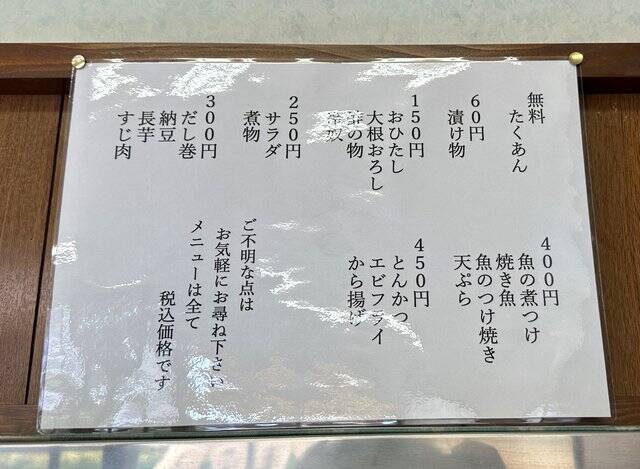 無料
たくあん
60円
漬け物
150円
おひたし
大根おろし
酢の物
冷奴
250円
サラダ
煮物
300円
だし巻
納豆
長芋
すじ肉
400円
魚の煮つけ
焼き魚
魚のつけ焼き
天ぷら
450円
とんかつ
エビフライ
から揚げ
ご不明な点は
お気軽にお尋ね下さい
メニューは全て
税込価格です